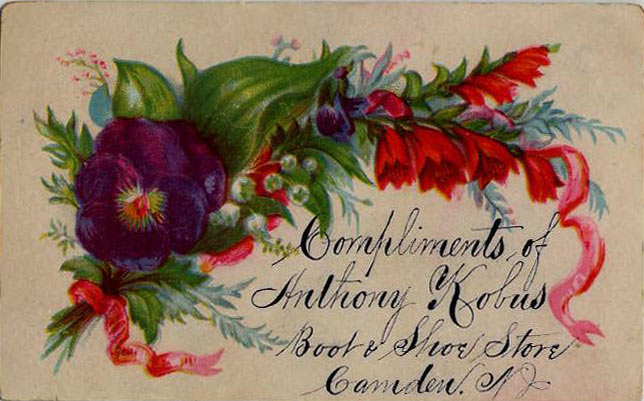 Compliments of
Anthony Kobus
Boot & Shoe Store
Camden. NJ